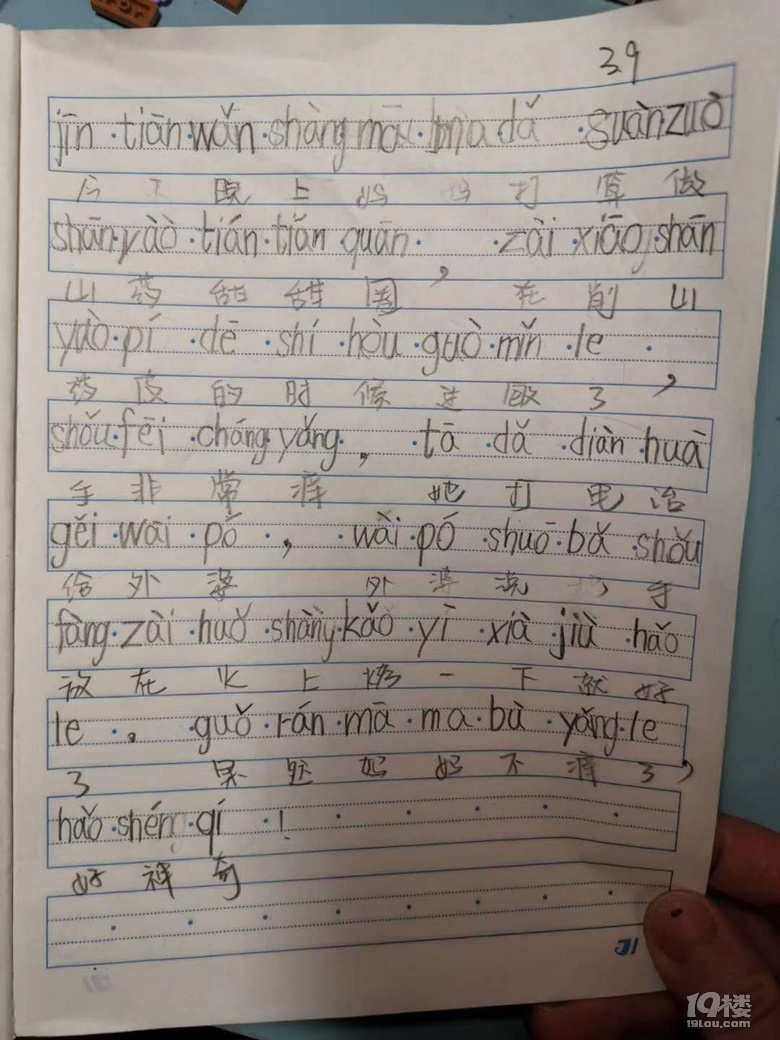 3.9
jīn tiān wǎn shàng mā ma dǎ suàn zuò
今天晚上妈妈打算做
shān yào tián tián quān , zài xiāo shān
山药甜甜圈 在削山
yào pí dē shí hòu guò mǐn le ,
药皮的时候过敏了
shǒu fēi cháng yǎng , tā dǎ diàn huà
手非常痒 她打电话
gěi wài pó , wài pó shuō bǎ shǒu
给外婆 外婆说把手
fàng zài huǒ shàng kǎo yī xià jiù hǎo
放在火上烤一下就好
le 。 guǒ rán mā ma bù yǎng le
了 果然妈妈不痒了,
hǎo shén qí !
好神奇
19楼
19lou.com